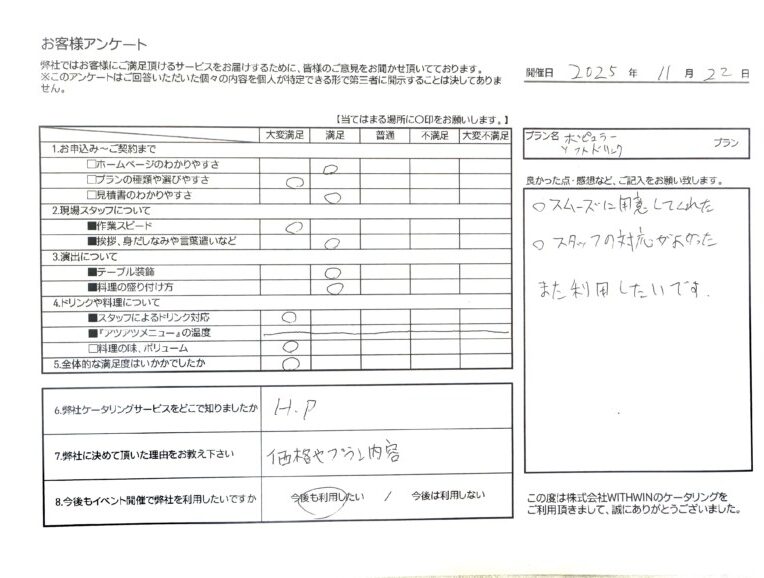 お客様アンケート
弊社ではお客様にご満足頂けるサービスをお届けするために、皆様のご意見をお聞かせ頂いております。
※このアンケートはご回答いただいた個々の内容を個人が特定できる形で第三者に開示することは決してありません。
開催日 2025 年 11 月 22 日
【当てはまる場所に〇印をお願いします。】
大変満足 満足 普通 不満足 大変不満足
1.お申込み～ご契約まで
□ホームページのわかりやすさ ○
□プランの種類や選びやすさ ○
□見積書のわかりやすさ ○
2.現場スタッフについて
■作業スピード ○
■挨拶、身だしなみや言葉遣いなど ○
3.演出について
■テーブル装飾 ○
■料理の盛り付け方 ○
4.ドリンクや料理について
■スタッフによるドリンク対応 ○
■『アツアツメニュー』の温度
□料理の味、ボリューム ○
5.全体的な満足度はいかがでしたか ○
6.弊社ケータリングサービスをどこで知りましたか H.P
7.弊社に決めて頂いた理由をお教え下さい 価格やプラン内容
8.今後もイベント開催で弊社を利用したいですか 今後も利用したい / 今後は利用しない
プラン名 ポピュラー
ソフトドリンク プラン
良かった点・感想など、ご記入をお願い致します。
○スムーズに用意してくれた
○スタッフの対応がよかった
また利用したいです.
この度は株式会社WITHWINのケータリングを
ご利用頂きまして、誠にありがとうございました。